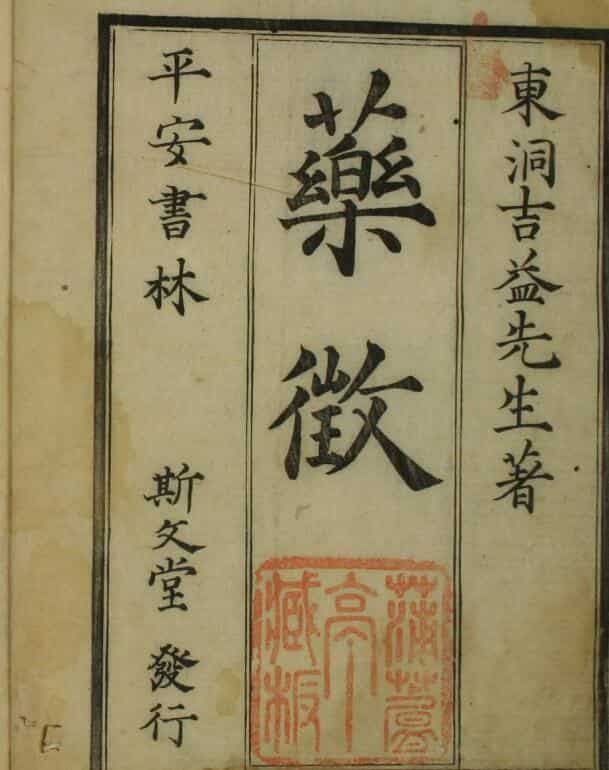 東洞吉益先生著
藥徵
平安書林 斯文堂 發行
蒲
亭
臧板